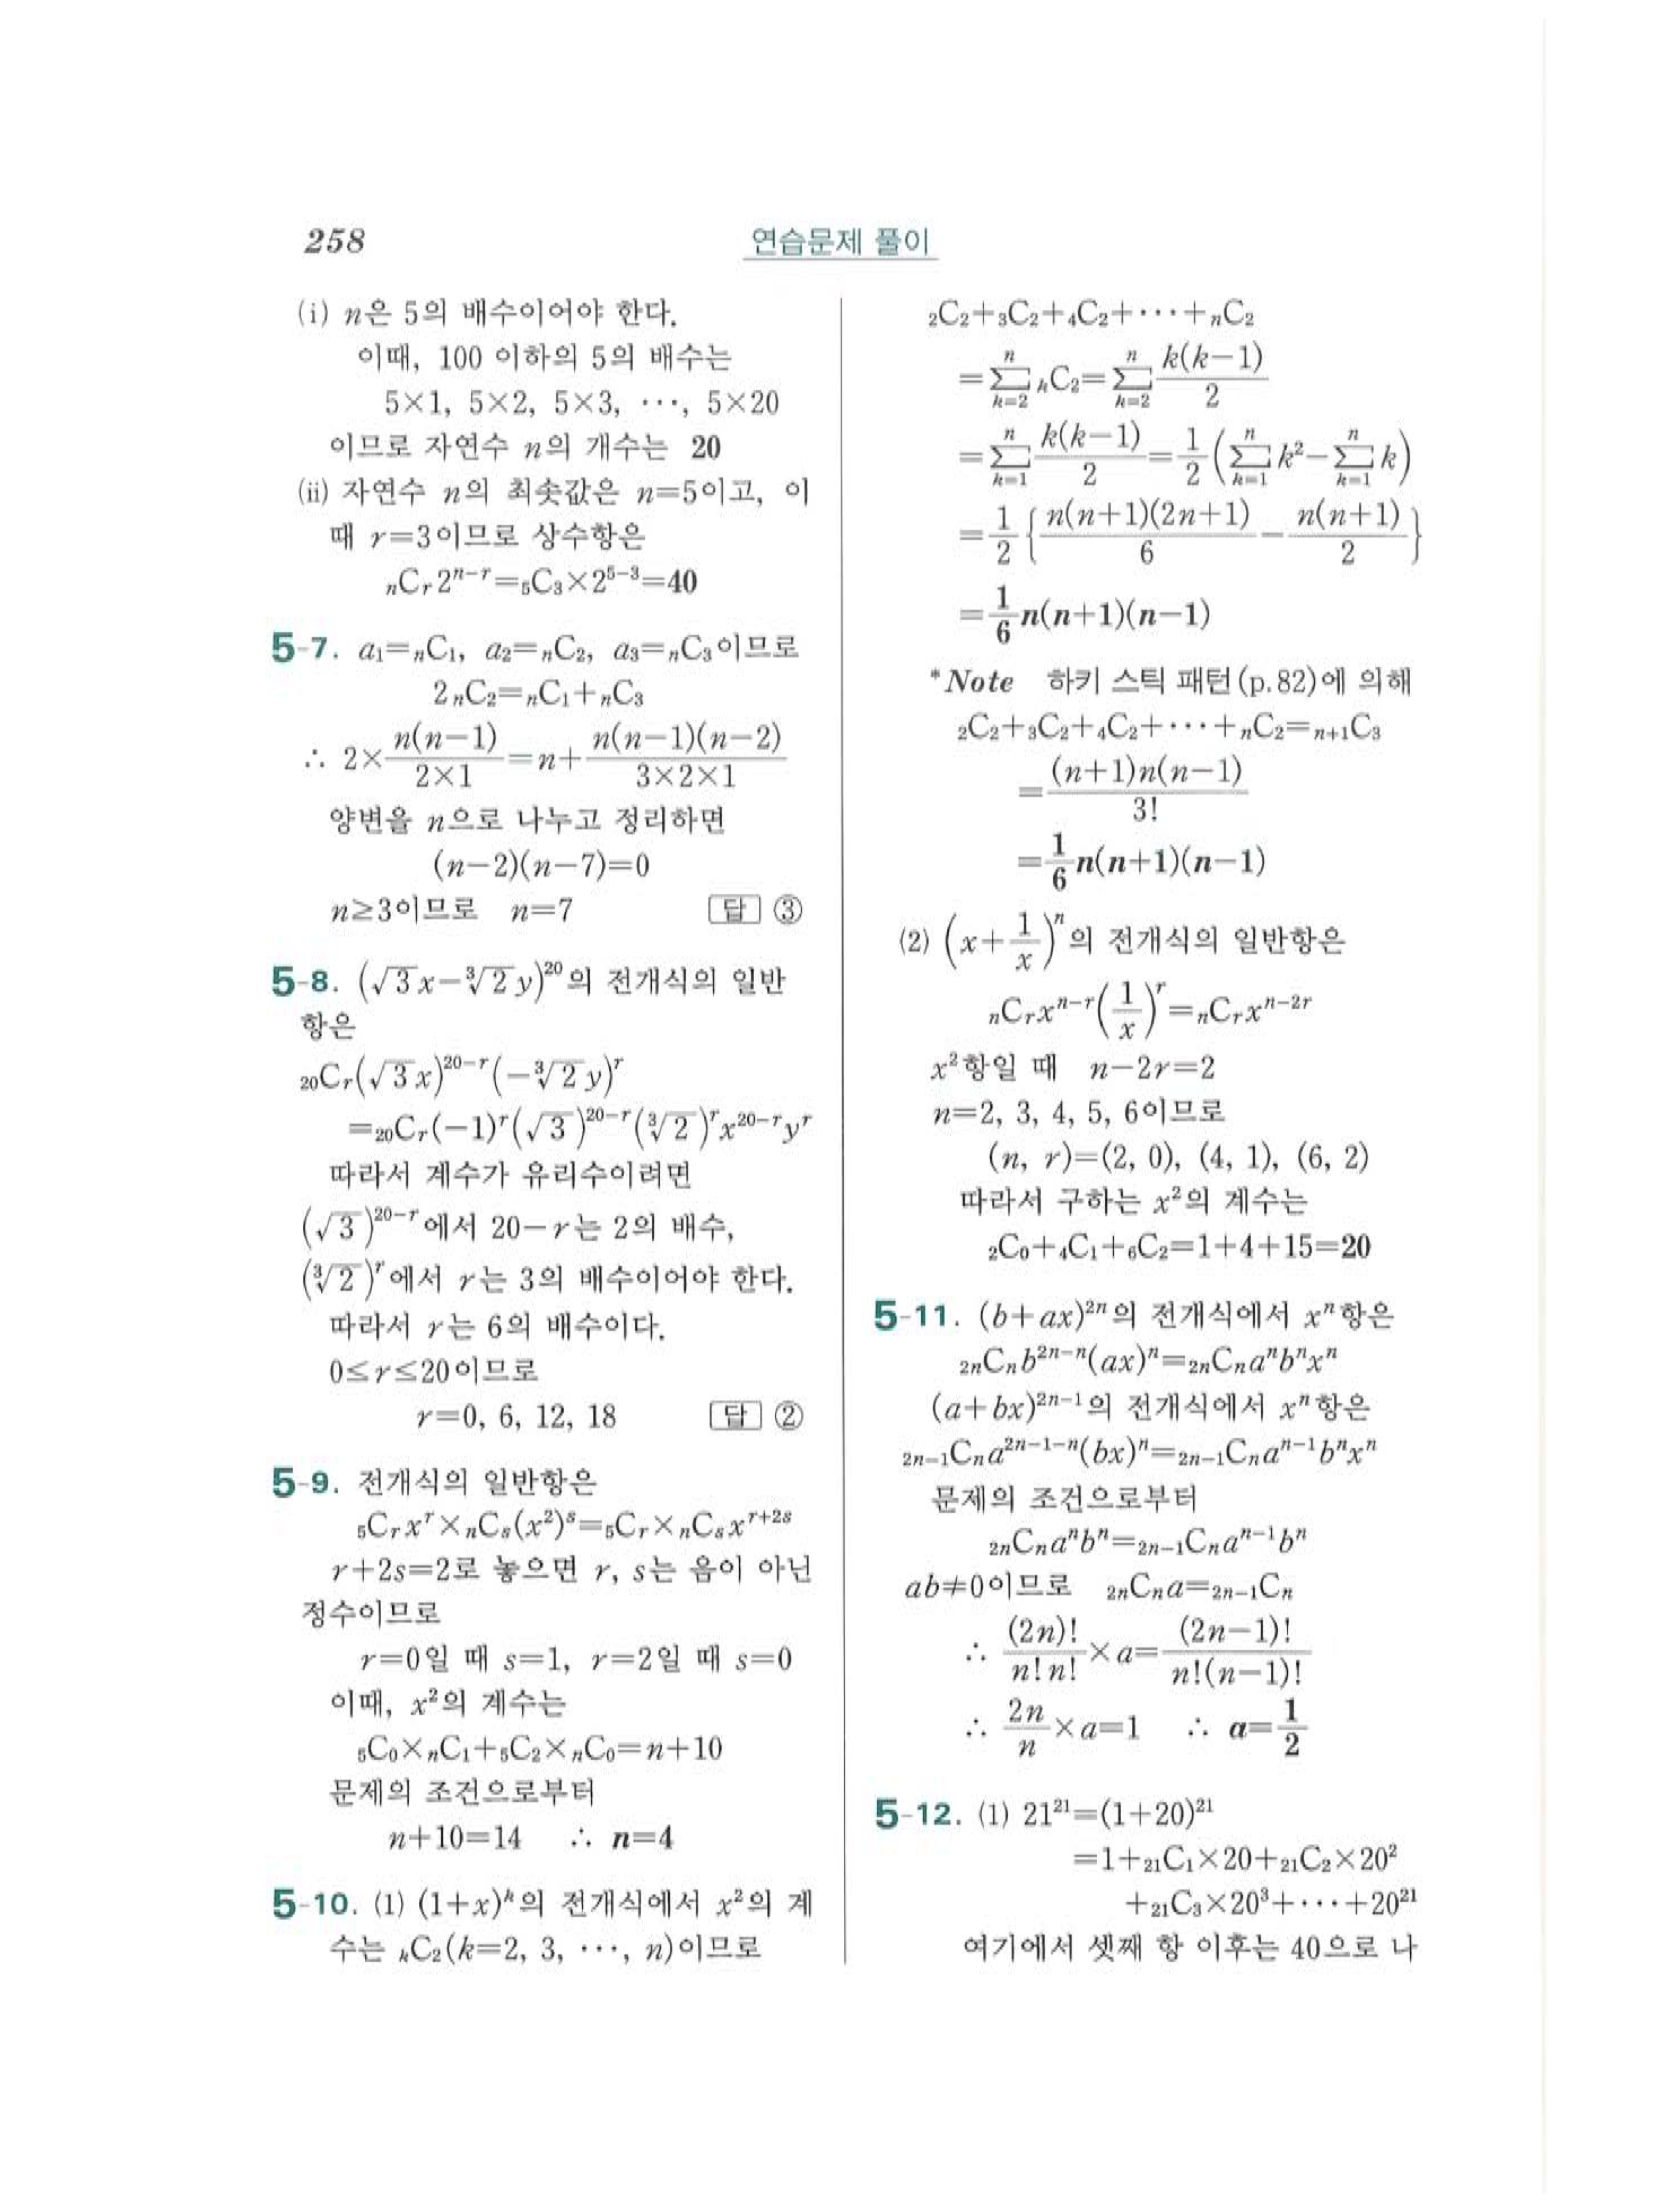 258
연습문제 풀이
(i) n은 5의 배수이어야 한다.
이때, 100 이하의 5의 배수는
5×1, 5×2, 5×3, ⋯, 5×20
이므로 자연수 n의 개수는 20
(ii) 자연수 n의 최솟값은 n=5이고, 이
때 r=3이므로 상수항은
ₙCᵣ2ⁿ⁻ʳ=₅C₃×2⁵⁻³=40
5-7. a₁=ₙC₁, a₂=ₙC₂, a₃=ₙC₃이므로
2ₙC₂=ₙC₁+ₙC₃
∴ 2×n(n−1)/(2×1)=n+n(n−1)(n−2)/(3×2×1)
양변을 n으로 나누고 정리하면
(n−2)(n−7)=0
n≥3이므로 n=7 답 ③
5-8. (√3x−∛2y)²⁰의 전개식의 일반
항은
₂₀Cᵣ(√3x)²⁰⁻ʳ(−∛2y)ʳ
=₂₀Cᵣ(−1)ʳ(√3)²⁰⁻ʳ(∛2)ʳx²⁰⁻ʳyʳ
따라서 계수가 유리수이려면
(√3)²⁰⁻ʳ에서 20−r는 2의 배수,
(∛2)ʳ에서 r는 3의 배수이어야 한다.
따라서 r는 6의 배수이다.
0≤r≤20이므로
r=0, 6, 12, 18 답 ②
5-9. 전개식의 일반항은
₅Cᵣxʳ×ₙCₛ(x²)ˢ=₅Cᵣ×ₙCₛxʳ⁺²ˢ
r+2s=2로 놓으면 r, s는 음이 아닌
정수이므로
r=0일 때 s=1, r=2일 때 s=0
이때, x²의 계수는
₅C₀×ₙC₁+₅C₂×ₙC₀=n+10
문제의 조건으로부터
n+10=14 ∴ n=4
5-10. (1) (1+x)ᵏ의 전개식에서 x²의 계
수는 ₖC₂(k=2, 3, ⋯, n)이므로
₂C₂+₃C₂+₄C₂+⋯+ₙC₂
=∑_{k=2}^{n} ₖC₂=∑_{k=2}^{n} k(k−1)/2
=∑_{k=1}^{n} k(k−1)/2=1/2(∑_{k=1}^{n} k²−∑_{k=1}^{n} k)
=1/2{n(n+1)(2n+1)/6−n(n+1)/2}
=1/6 n(n+1)(n−1)
*Note 하키 스틱 패턴(p.82)에 의해
₂C₂+₃C₂+₄C₂+⋯+ₙC₂=ₙ₊₁C₃
=(n+1)n(n−1)/3!
=1/6 n(n+1)(n−1)
(2) (x+1/x)ⁿ의 전개식의 일반항은
ₙCᵣxⁿ⁻ʳ(1/x)ʳ=ₙCᵣxⁿ⁻²ʳ
x²항일 때 n−2r=2
n=2, 3, 4, 5, 6이므로
(n, r)=(2, 0), (4, 1), (6, 2)
따라서 구하는 x²의 계수는
₂C₀+₄C₁+₆C₂=1+4+15=20
5-11. (b+ax)²ⁿ의 전개식에서 xⁿ항은
₂ₙCₙb²ⁿ⁻ⁿ(ax)ⁿ=₂ₙCₙaⁿbⁿxⁿ
(a+bx)²ⁿ⁻¹의 전개식에서 xⁿ항은
₂ₙ₋₁Cₙa²ⁿ⁻¹⁻ⁿ(bx)ⁿ=₂ₙ₋₁Cₙaⁿ⁻¹bⁿxⁿ
문제의 조건으로부터
₂ₙCₙaⁿbⁿ=₂ₙ₋₁Cₙaⁿ⁻¹bⁿ
ab≠0이므로 ₂ₙCₙa=₂ₙ₋₁Cₙ
∴ (2n)!/(n!n!)×a=(2n−1)!/(n!(n−1)!)
∴ 2n/n×a=1 ∴ a=1/2
5-12. (1) 21²¹=(1+20)²¹
=1+₂₁C₁×20+₂₁C₂×20²
+₂₁C₃×20³+⋯+20²¹
여기에서 셋째 항 이후는 40으로 나